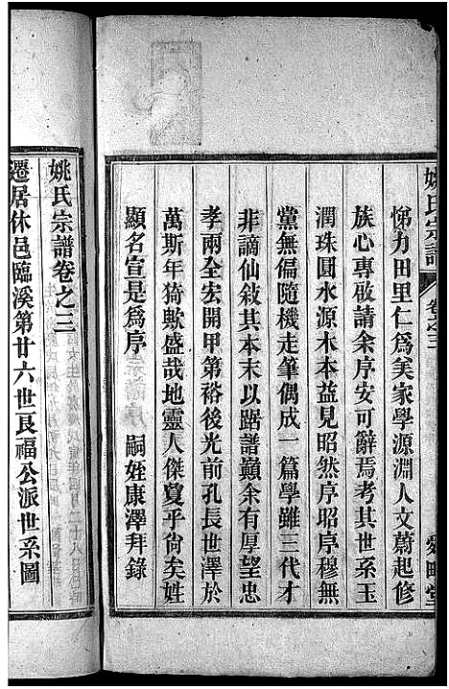 姚氏宗譜
卷之三
愛畸堂
悌力田里仁爲美家學源淵人文蔚起修
族心專啟請余序安可辭焉考其世系玉
潤珠圓水源木本益見昭然序昭序穆無
黨無偏隨機走筆偶成一篇學雖三代才
非謫仙敍其本末以踞譜巔余有厚望忠
孝兩全宏開甲第裕後光前孔長世澤於
萬斯年猗歟盛哉地靈人傑敻乎尙矣姓
顯名宣是爲序
嗣姪康澤拜錄
姚氏宗譜卷之三
遷居休邑臨溪第廿六世艮福公派世系圖